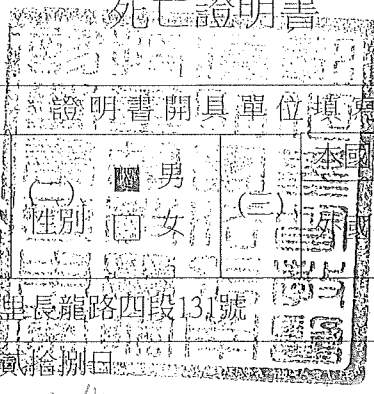 死亡證明書
證明書開具單位填
(二)
性別
男
女
(三)
本國
外國
里長龍路四段131號
貳拾捌日